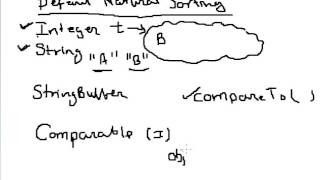 Default Natural Sorting
✓ Integer t→
B
✓ String "A" "B"
StringBuffer ✓ CompareTo( )
Comparable (I)
obj